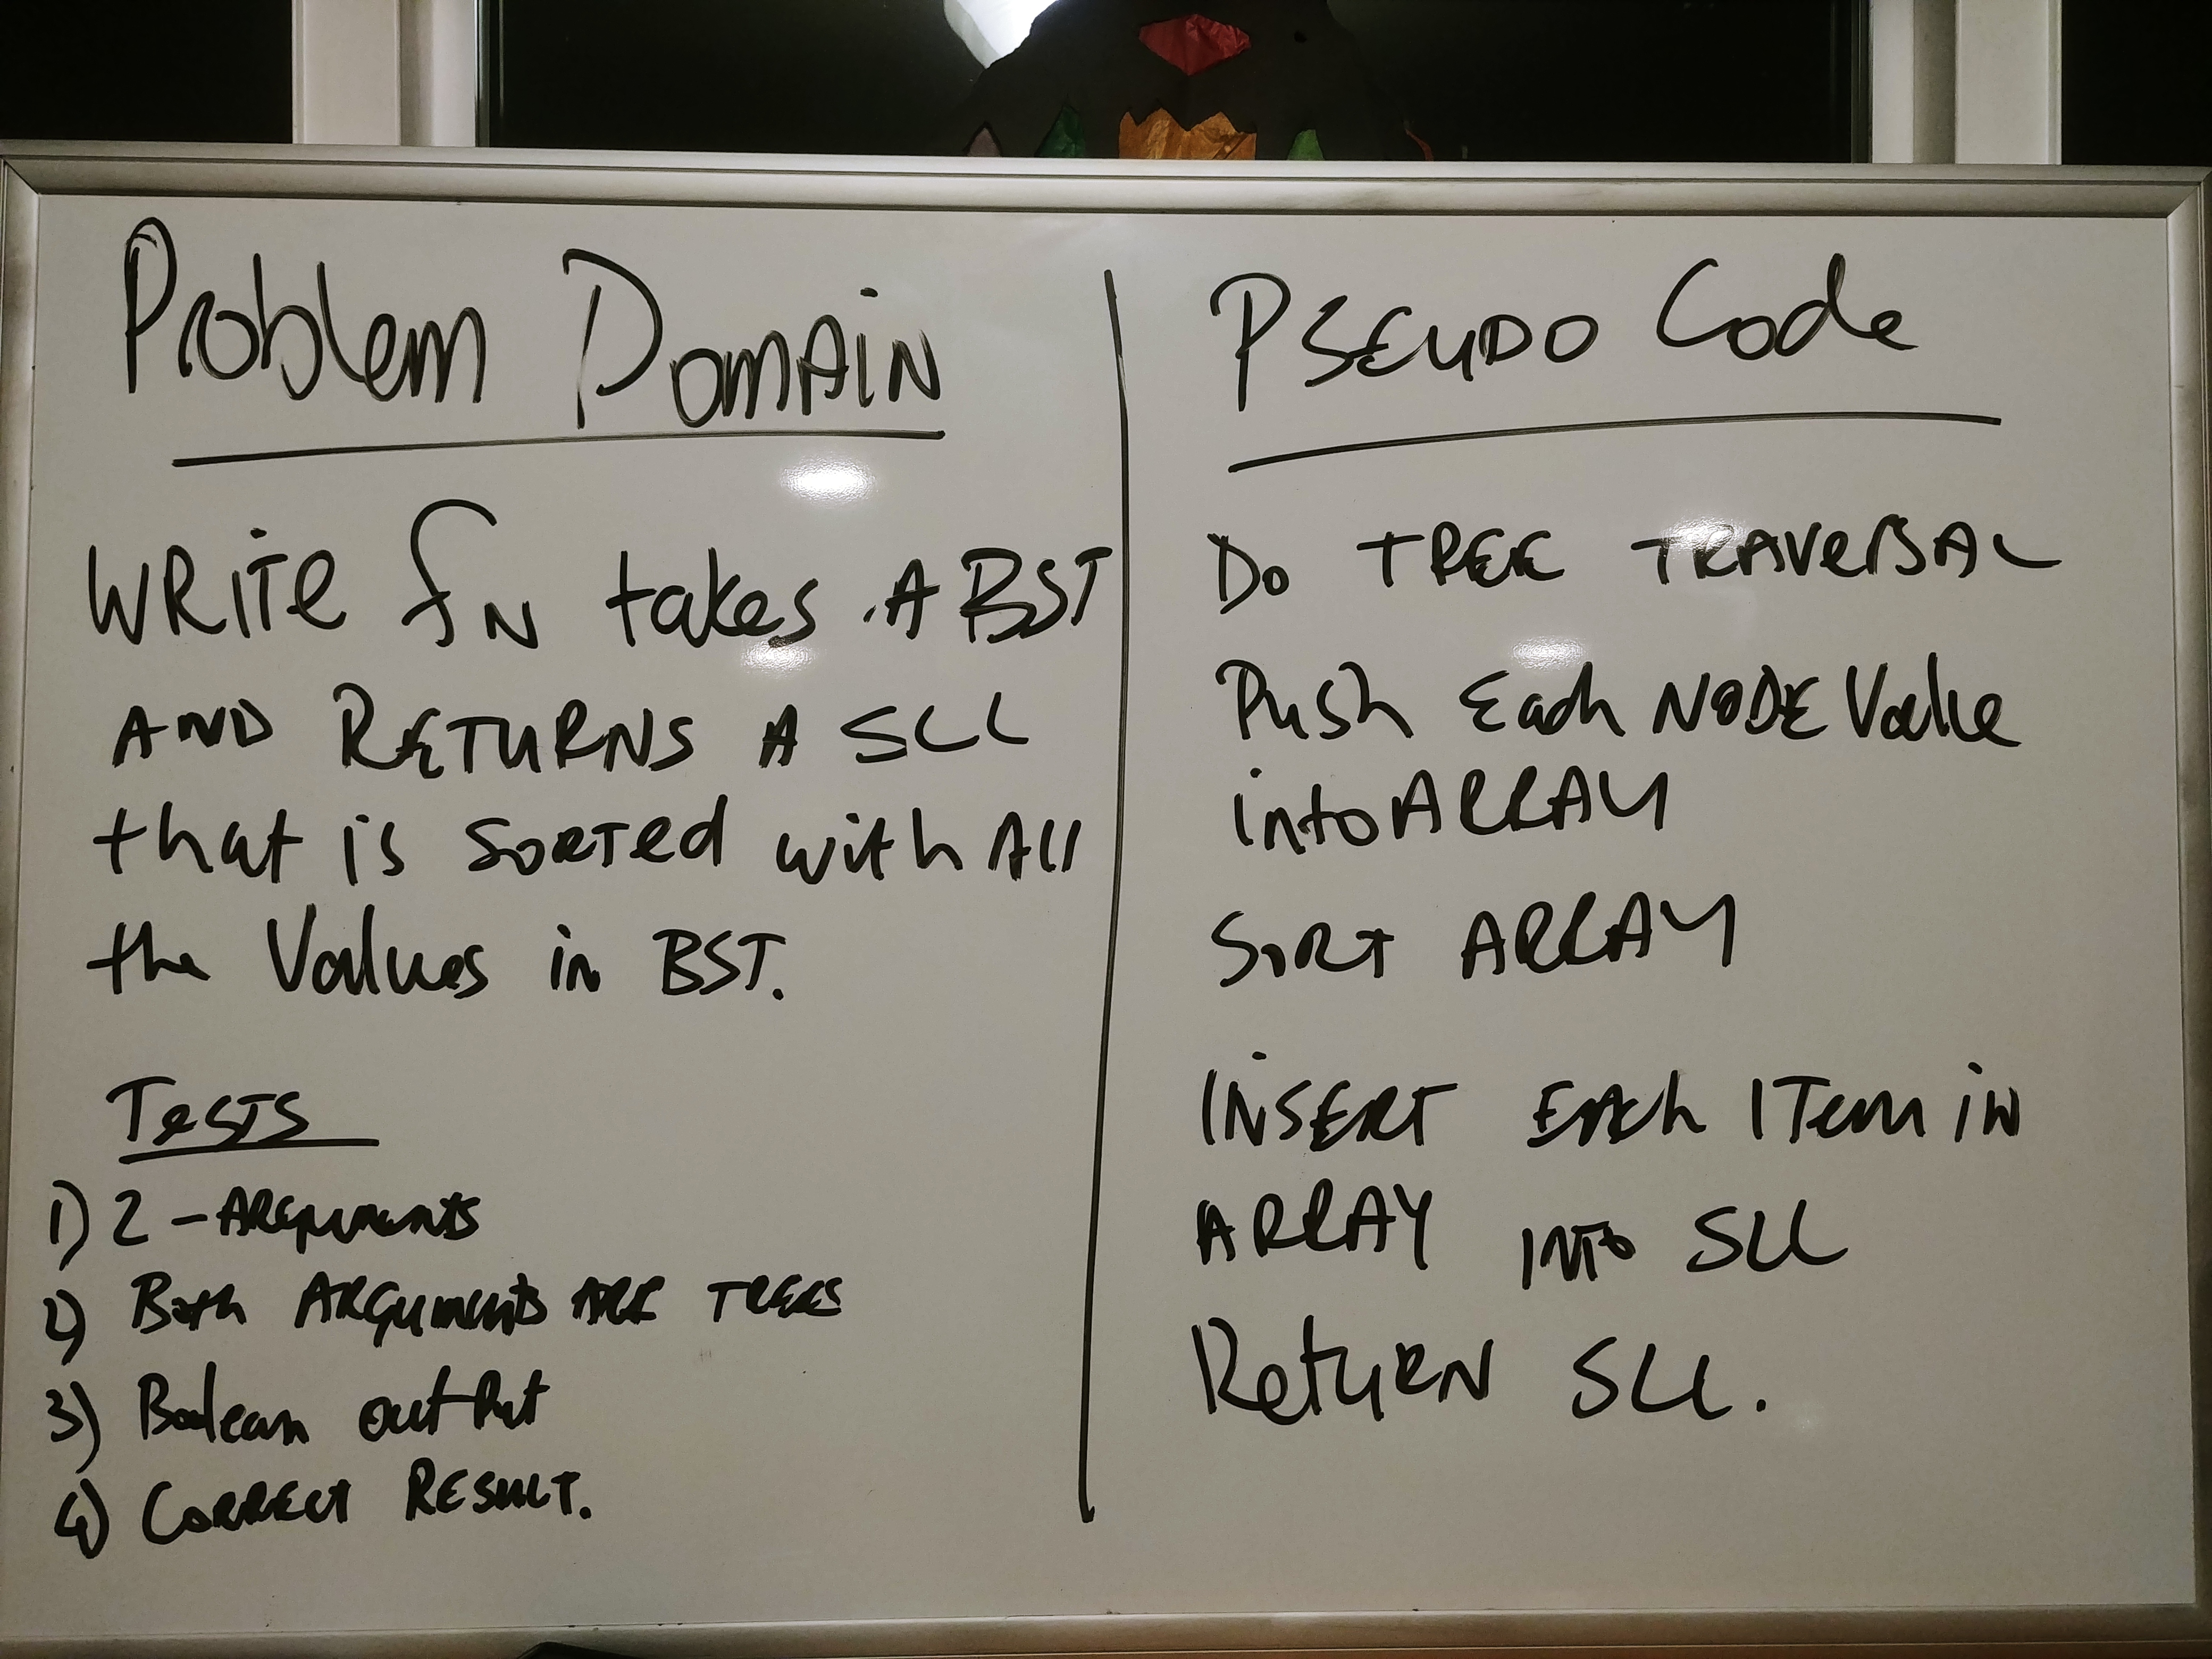 Problem Domain
Write fn takes a BST
and returns a SLL
that is sorted with all
the values in BST.
Tests
1) 2 - Arguments
2) Both Arguments are trees
3) Boolean output
4) Correct Result.
Pseudo Code
Do Tree Traversal
Push Each Node Value
into Array
Sort Array
Insert Each Item in
Array into SLL
Return SLL.